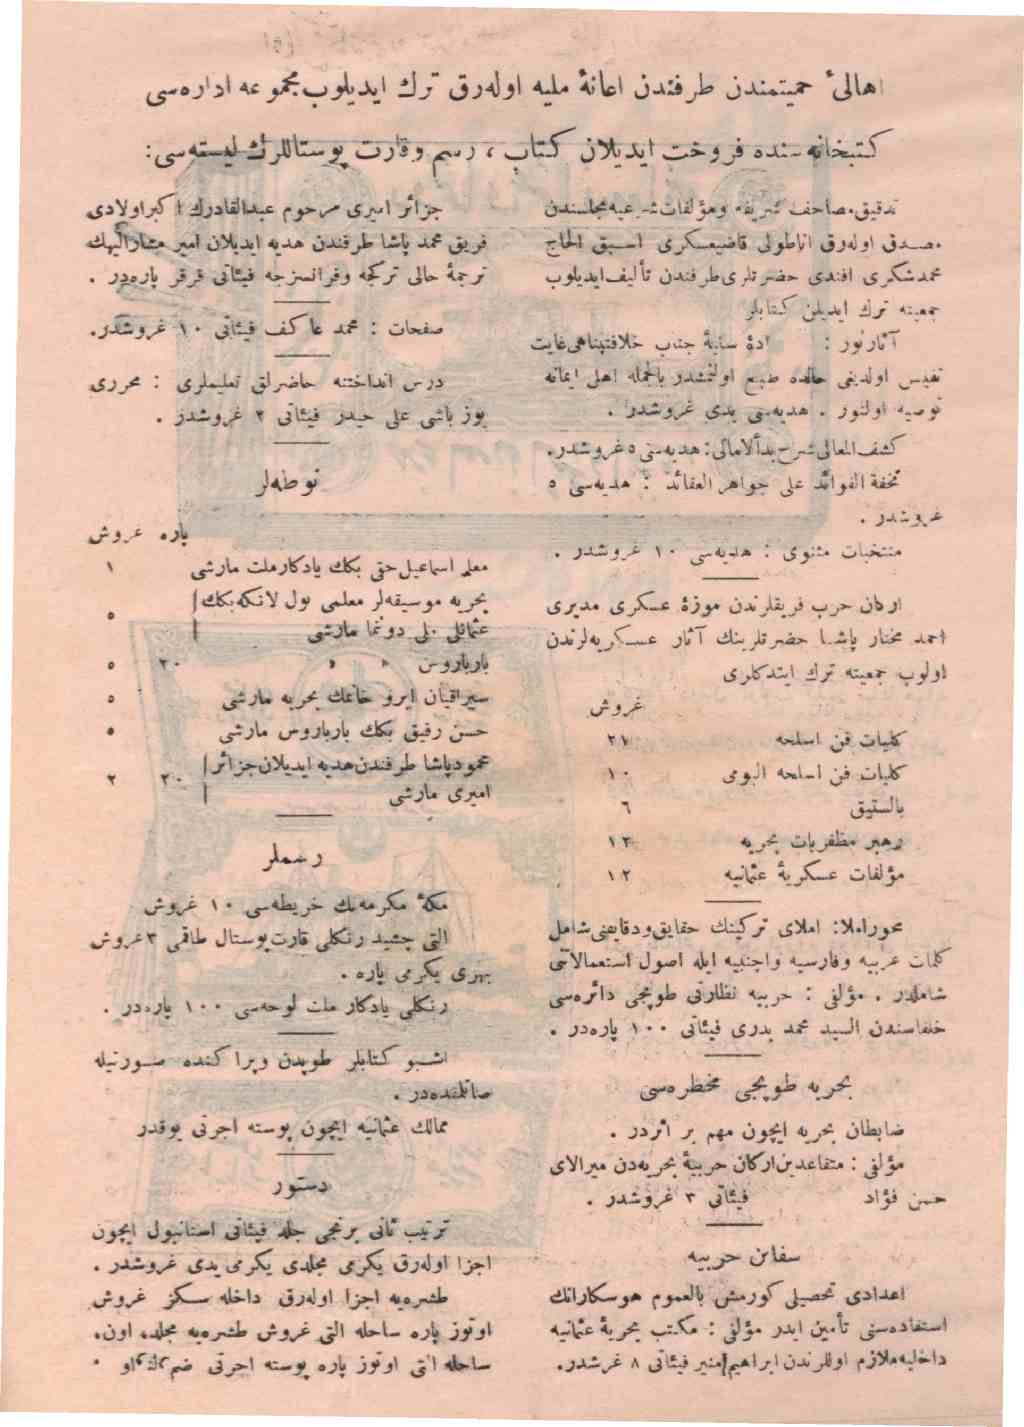 اهالئ حميتمندن طرفندن اعانهٔ مليه اوله‌رق ترك ايديلوب مجموعه اداره‌سی
كتبخانه‌سنده فروخت ايديلان كتاب ، رسم وقارت پوستاللرك ليسته‌سی:
تدقيق مصاحف شريفه ومؤلفات شرعيه مجلسندن
مصدق اوله‌رق اناطولی قاضيعسكری اسبق الحاج
محمد شكری افندی حضرتلری طرفندن تأليف ايديلوب
جمعيته ترك ايديلن كتابلر
آثار نور : اده سايهٔ جناب خلافتپناهی غايت
نفيس اولديغی حالده طبع اولنمشدر بالجمله اهل ايمانه
توصيه اولنور . هديه‌سی يدی غروشدر .
كشف المعالی شرح بدأ الامالی : هديه‌سی ٥ غروشدر.
تحفة الفوائد علی جواهر العقائد : هديه‌سی ٥
غروشدر .
منتخبات مثنوی : هديه‌سی ١٠ غروشدر .
اركان حرب فريقلرندن موزهٔ عسكری مديری
احمد مختار پاشا حضرتلرينك آثار عسكريه‌لرندن
اولوب جمعيته ترك ايتدكلری
غروش
كليات فن اسلحه ٢١
كليات فن اسلحه البومی ١٠
بالستيق ٦
رهبر مظفريات بحريه ١٢
مؤلفات عسكريهٔ عثمانيه ١٢
محور املا: املای تركينك حقايق ودقايقنی شامل
كلمات عربيه وفارسيه واجنبيه ايله اصول استعمالاتی
شاملدر . مؤلفی : حربيه نظارتی طوپجی دائره‌سی
خلفاسندن السيد محمد بدری فيئاتی ١٠٠ پاره‌در .
بحريه طوپجی مخطره‌سی
ضابطان بحريه ايچون مهم بر اثردر .
مؤلفی : متقاعدين اركان حربيهٔ بحريه‌دن ميرالای
حسن فؤاد فيئاتی ٣ غروشدر .
سفائن حربيه
اعدادی تحصيلی كورمش بالعموم هوسكارانك
استفاده‌سنی تأمين ايدر مؤلفی : مكتب بحريهٔ عثمانيه
داخليه ملازم اوللرندن ابراهيم منير فيئاتی ٨ غرشدر.
جزائر اميری مرحوم عبدالقادرك اكبر اولادی
فريق محمد پاشا طرفندن هديه ايديلان امير مشاراليهك
ترجمهٔ حالی تركجه وفرانسزجه فيئاتی قرقر پاره‌در .
صفحات : محمد عاكف فيئاتی ١٠ غروشدر.
درس انداختنه حاضرلق تعليملری : محرری
يوز باشی علی حيدر فيئاتی ٢ غروشدر .
نوطه‌لر
پاره غروش
معلم اسماعيل حقی بكك يادكار ملت مارشی ١
بحريه موسيقه‌لر معلمی پول لانكه بكك
عثمانلی دونما مارشی ٥
بارباروس » » ٢٠ ٥
سيراقيان ايرو خانمك بحريه مارشی ٥
حسن رفيق بكك بارباروس مارشی ٥
محمود پاشا طرفندن هديه ايديلان جزائر
اميری مارشی ٢٠ ٢
رسملر
مكهٔ مكرمه‌نك خريطه‌سی ١٠ غروش
التی چشيد رنكلی قارت پوستال طاقمی ٣ غروش
بهری يكرمی پاره .
رنكلی يادكار ملت لوحه‌سی ١٠٠ پاره‌در .
اشبو كتابلر طوپدن وپراكنده صورتيله
صاتلمنده‌در .
ممالك عثمانيه ايچون پوسته اجرتی يوقدر
دستور
ترتيب ثانی برنجی جلد فيئاتی استانبول ايچون
اجزا اوله‌رق يكرمی مجلدی يكرمی يدی غروشدر .
طشره‌يه اجزا اوله‌رق داخله سكز غروش
اوتوز پاره ساحله التی غروش طشره‌يه مجلد، اون،
ساحله التی اوتوز پاره پوسته اجرتی ضم